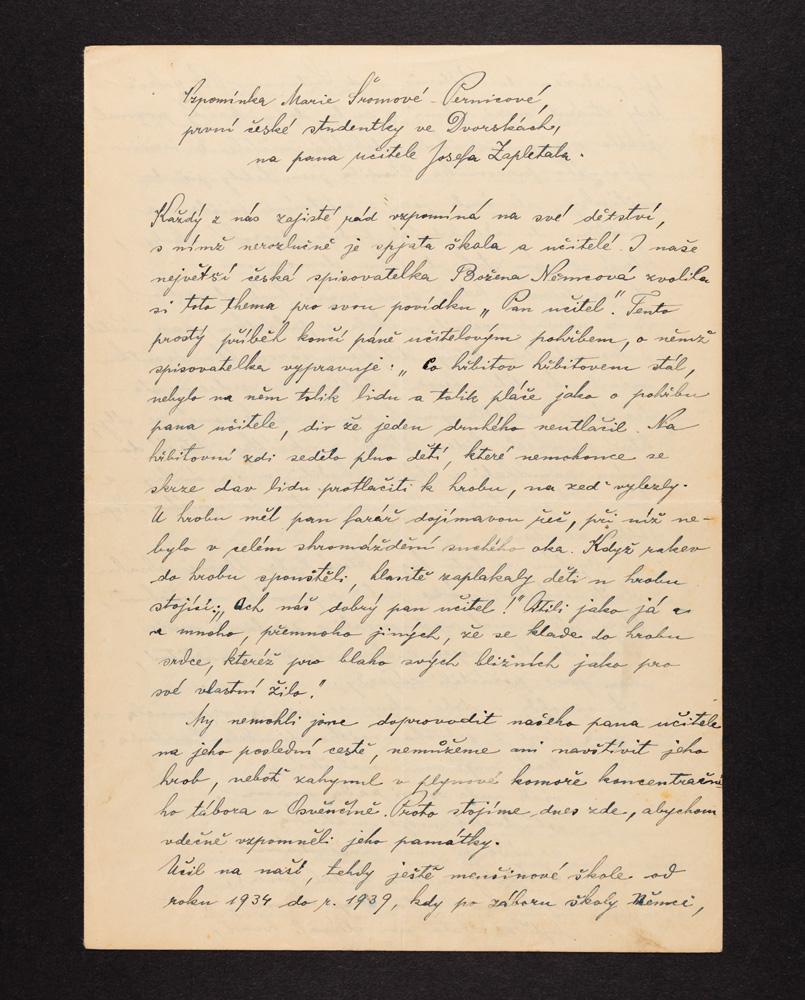 Vzpomínka Marie Šromové-Pernicové,
první české studentky ve Dvorskách,
na pana učitele Josefa Zapletala.
Každý z nás zajisté rád vzpomíná na své dětství,
s nímž nerozlučně je spjata škola a učitelé. I naše
největší česká spisovatelka Božena Němcová zvolila
si toto thema pro svou povídku „Pan učitel". Tento
prostý příběh končí páně učitelovým pohřbem, o němž
spisovatelka vypravuje: „Co hřbitov hřbitovem stál,
nebylo na něm tolik lidu a tolik pláče jako o pohřbu
pana učitele, div že jeden druhého neutlačil. Na
hřbitovní zdi sedělo plno dětí, které nemohouce se
skrze dav lidu protlačiti k hrobu, na zeď vylezly.
U hrobu měl pan farář dojímavou řeč, při níž ne-
bylo v celém shromáždění suchého oka. Když rakev
do hrobu spouštěli, hlasitě zaplakaly děti u hrobu
stojící: „Ach náš dobrý pan učitel!" Cítili jako já a
a mnoho, přemnoho jiných, že se klade do hrobu
srdce, kteréž pro blaho svých bližních jako pro
své vlastní žilo."
My nemohli jsme doprovodit našeho pana učitele
na jeho poslední cestě, nemůžeme ani navštívit jeho
hrob, neboť zahynul v plynové komoře koncentrační-
ho tábora v Osvěnčině. Proto stojíme dnes zde, abychom
vděčně vzpomněli jeho památky.
Učil na naší, tehdy ještě menšinové škole od
roku 1934 do r. 1939, kdy po záboru školy Němci,